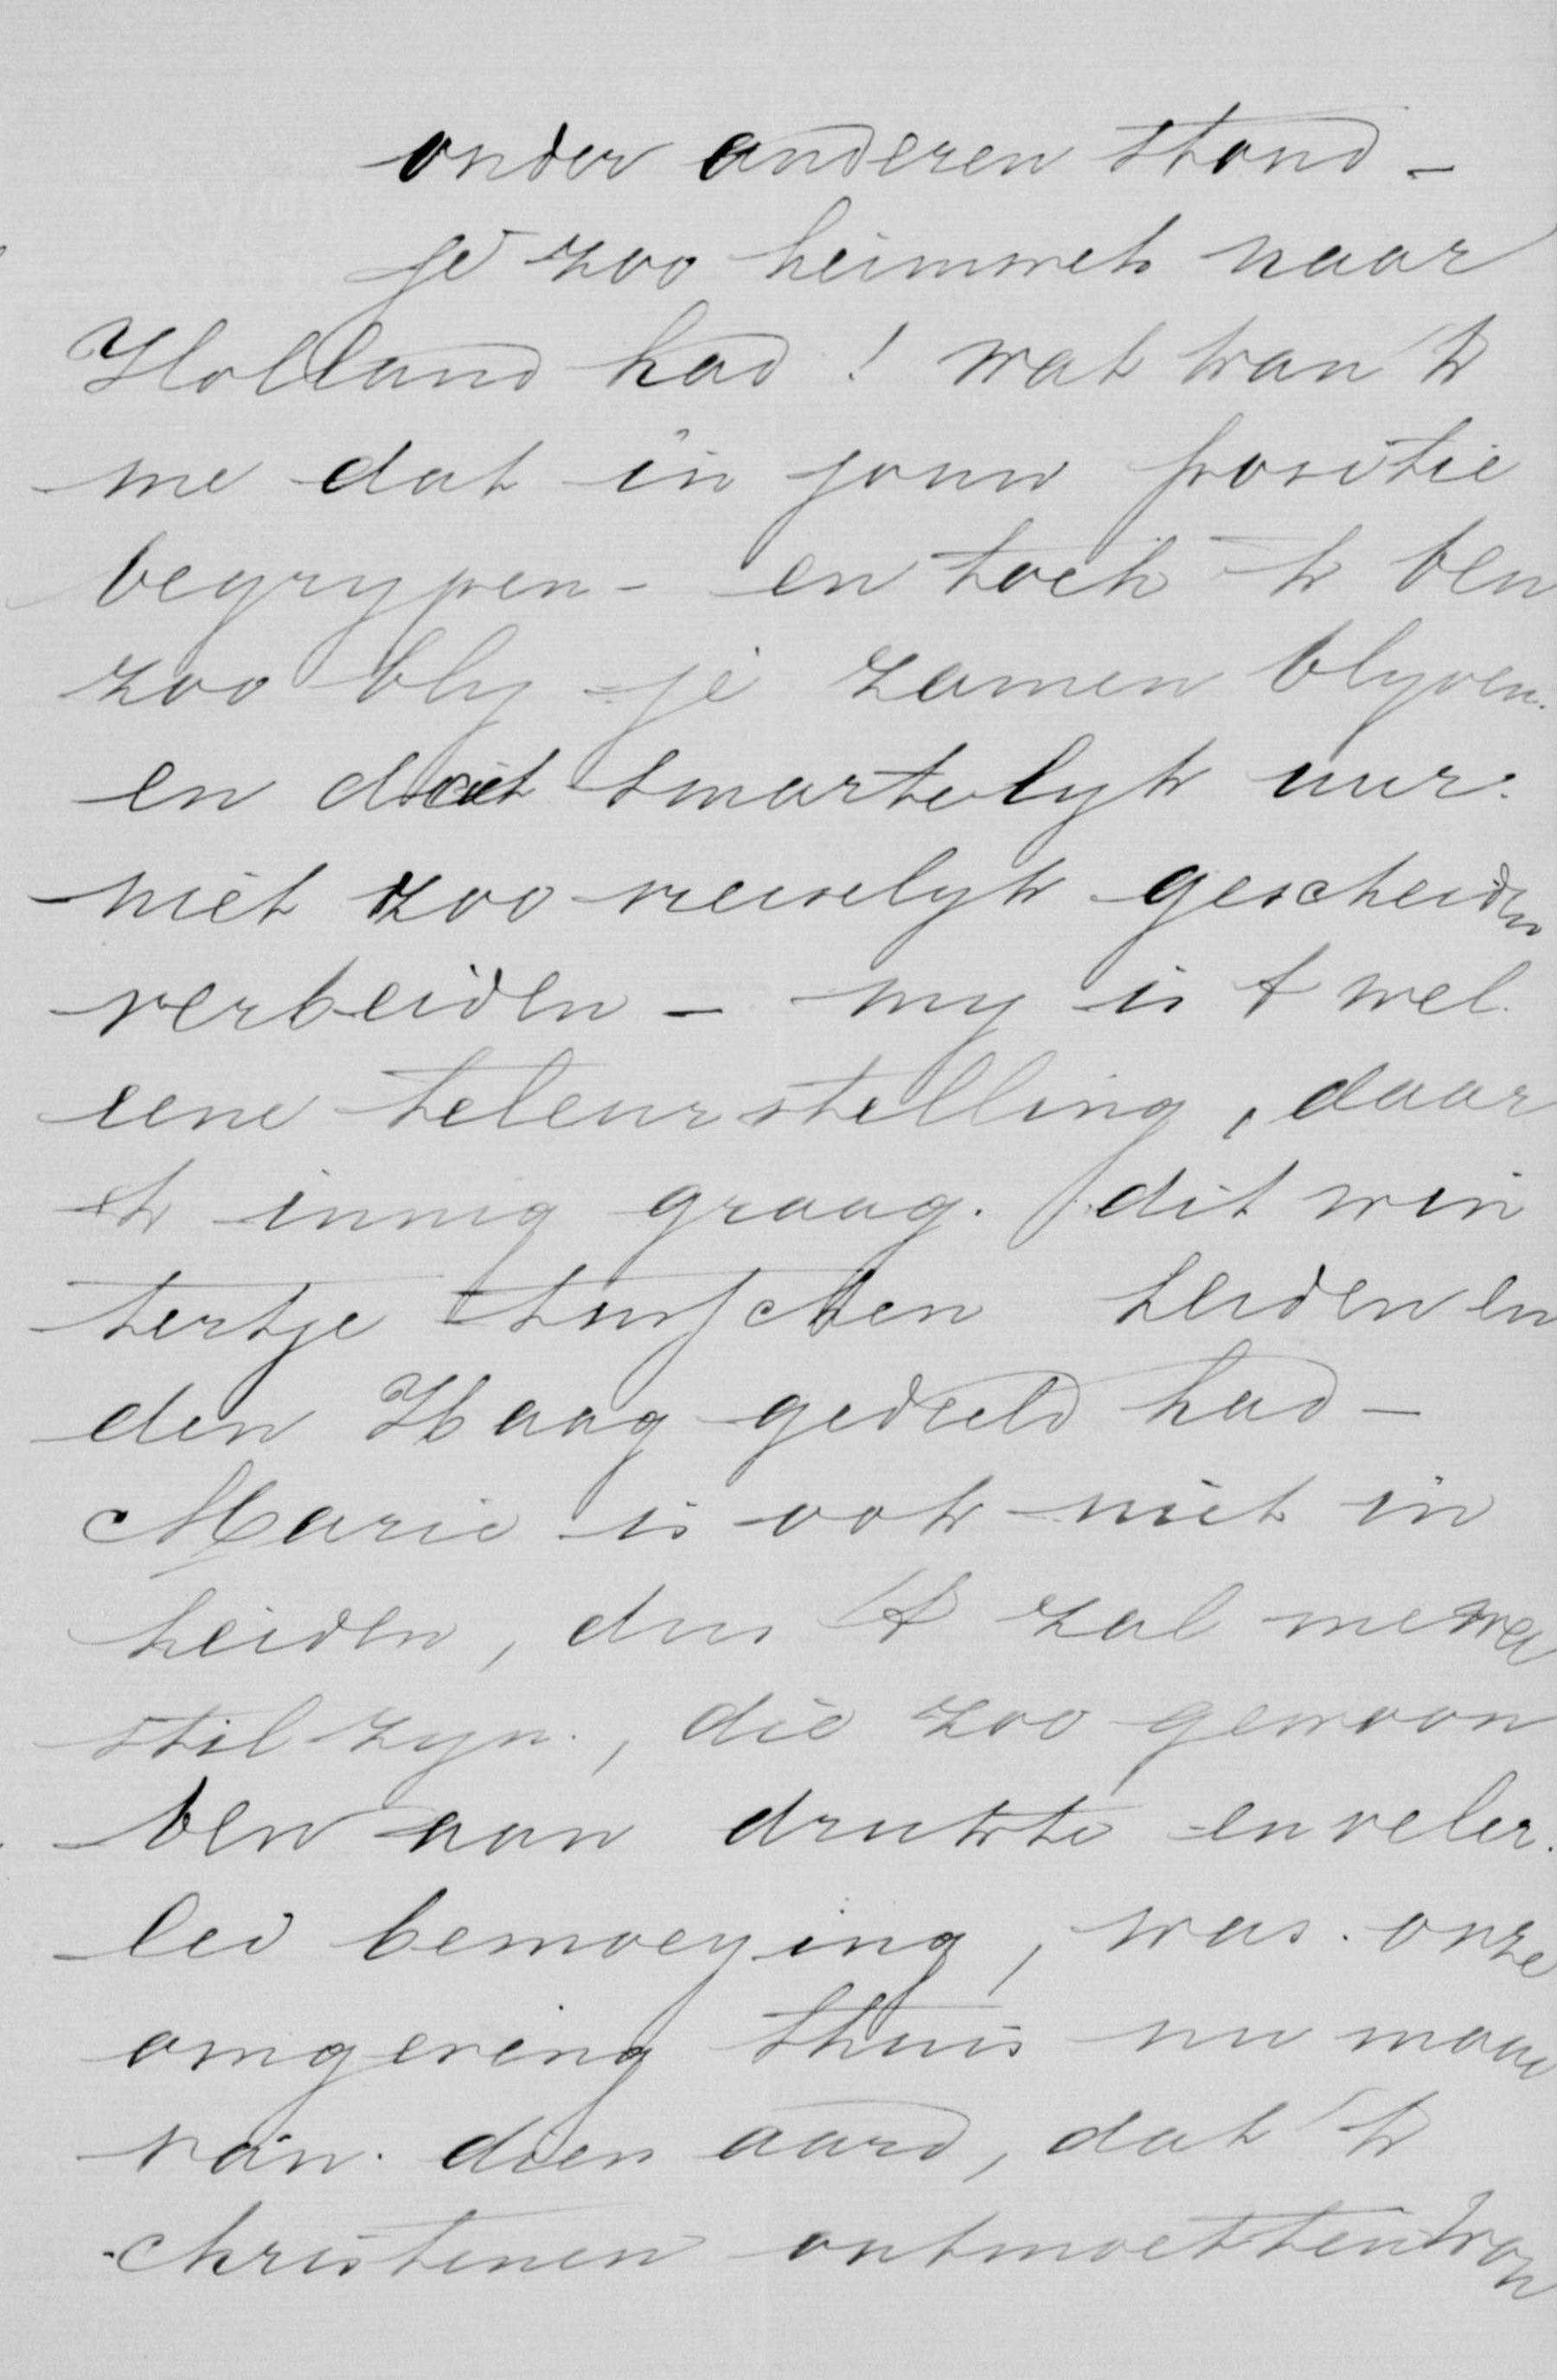 onder anderen stond -
je zoo heimweh naar
Holland had! wat kan 'k
me dat in jouw positie
begrypen - en toch 'k ben
zoo bly - je zamen blyven
en dat smartelyk uur
niet zoo vreiselyk gescheiden
verbeiden - my is 't wel
eene teleurstelling, daar
ik innig graag. dit win
tertje tusschen Leiden en
den Haag gedeeld had -
Marie is ook niet in
Leiden, dus 't zal me wel
stil zyn., die zoo gewoon
ben aan drukte en veler
lei bemoeying, was onze
omgeving thuis nu maar
van dien aard, dat 'k
christenen ontmoetten kon